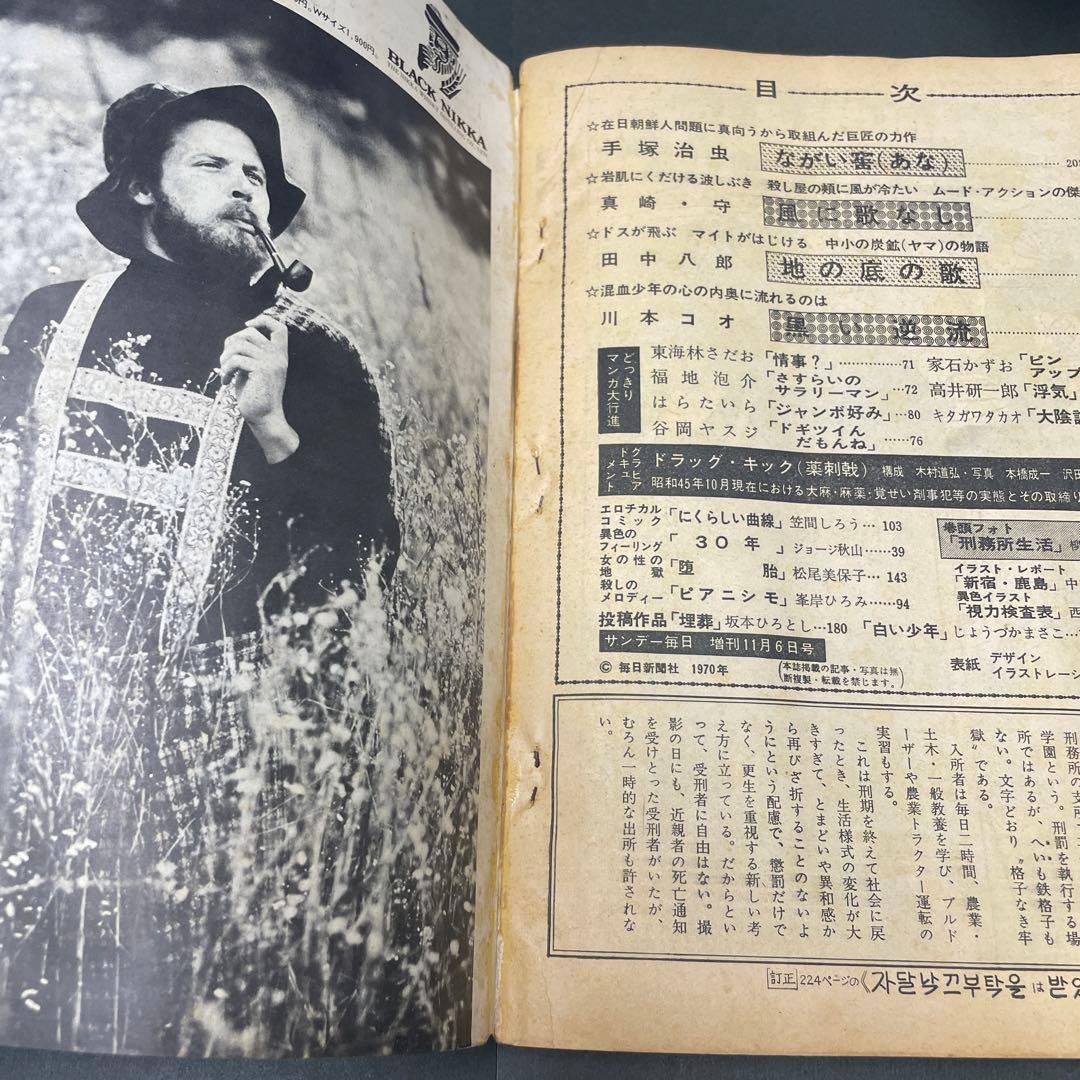 円。Wサイズ1,900円。
BLACK NIKKA
目次
☆在日朝鮮人問題に真向うから取組んだ巨匠の力作
手塚治虫 ながい窖(あな)
☆岩肌にくだける波しぶき 殺し屋の頬に風が冷たい ムード・アクションの傑
真崎・守 風に歌なし
☆ドスが飛ぶ マイトがはじける 中小の炭鉱(ヤマ)の物語
田中八郎 地の底の歌
☆混血少年の心の内奥に流れるのは
川本コオ 黒い逆流
どっきりマンガ大行進
東海林さだお「情事?」…………71 家石かずお「ピンアップ
福地泡介「さすらいのサラリーマン」…72 高井研一郎「浮気」
はらたいら「ジャンボ好み」…80 キタガワタカオ「大陰
谷岡ヤスジ「ドギツイんだもんね」……76
グラビアドキュメント
ドラッグ・キック(薬刺戟) 構成 木村道弘・写真 本橋成一 沢田
昭和45年10月現在における大麻・麻薬・覚せい剤事犯等の実態とその取締り
エロチカルコミック「にくらしい曲線」笠間しろう…103
異色のフィーリング「30年」ジョージ秋山……39
女の性の地獄「堕胎」松尾美保子…143
殺しのメロディー「ピアニシモ」峯岸ひろみ……94
巻頭フォト
「刑務所生活」
イラスト・レポート
「新宿・鹿島」中
異色イラスト
「視力検査表」西
投稿作品「埋葬」坂本ひろとし…180 「白い少年」じょうづかまさこ…
サンデー毎日 増刊11月6日号
© 毎日新聞社 1970年
(本誌掲載の記事・写真は無断複製・転載を禁じます。)
表紙 デザイン
イラストレーシ
刑務所の支所
学園という。刑罰を執行する場
所ではあるが、へいも鉄格子も
ない。文字どおり〝格子なき牢
獄〟である。
入所者は毎日二時間、農業・
土木・一般教養を学び、ブルド
ーザーや農業トラクター運転の
実習もする。
これは刑期を終えて社会に戻
ったとき、生活様式の変化が大
きすぎて、とまどいや異和感か
ら再びざ折することのないよ
うにという配慮で、懲罰だけで
なく、更生を重視する新しい考
え方に立っている。だからとい
って、受刑者に自由はない。撮
影の日にも、近親者の死亡通知
を受けとった受刑者がいたが、
むろん一時的な出所も許されな
い。
訂正 224ページの《자달낙끄부탁을は받